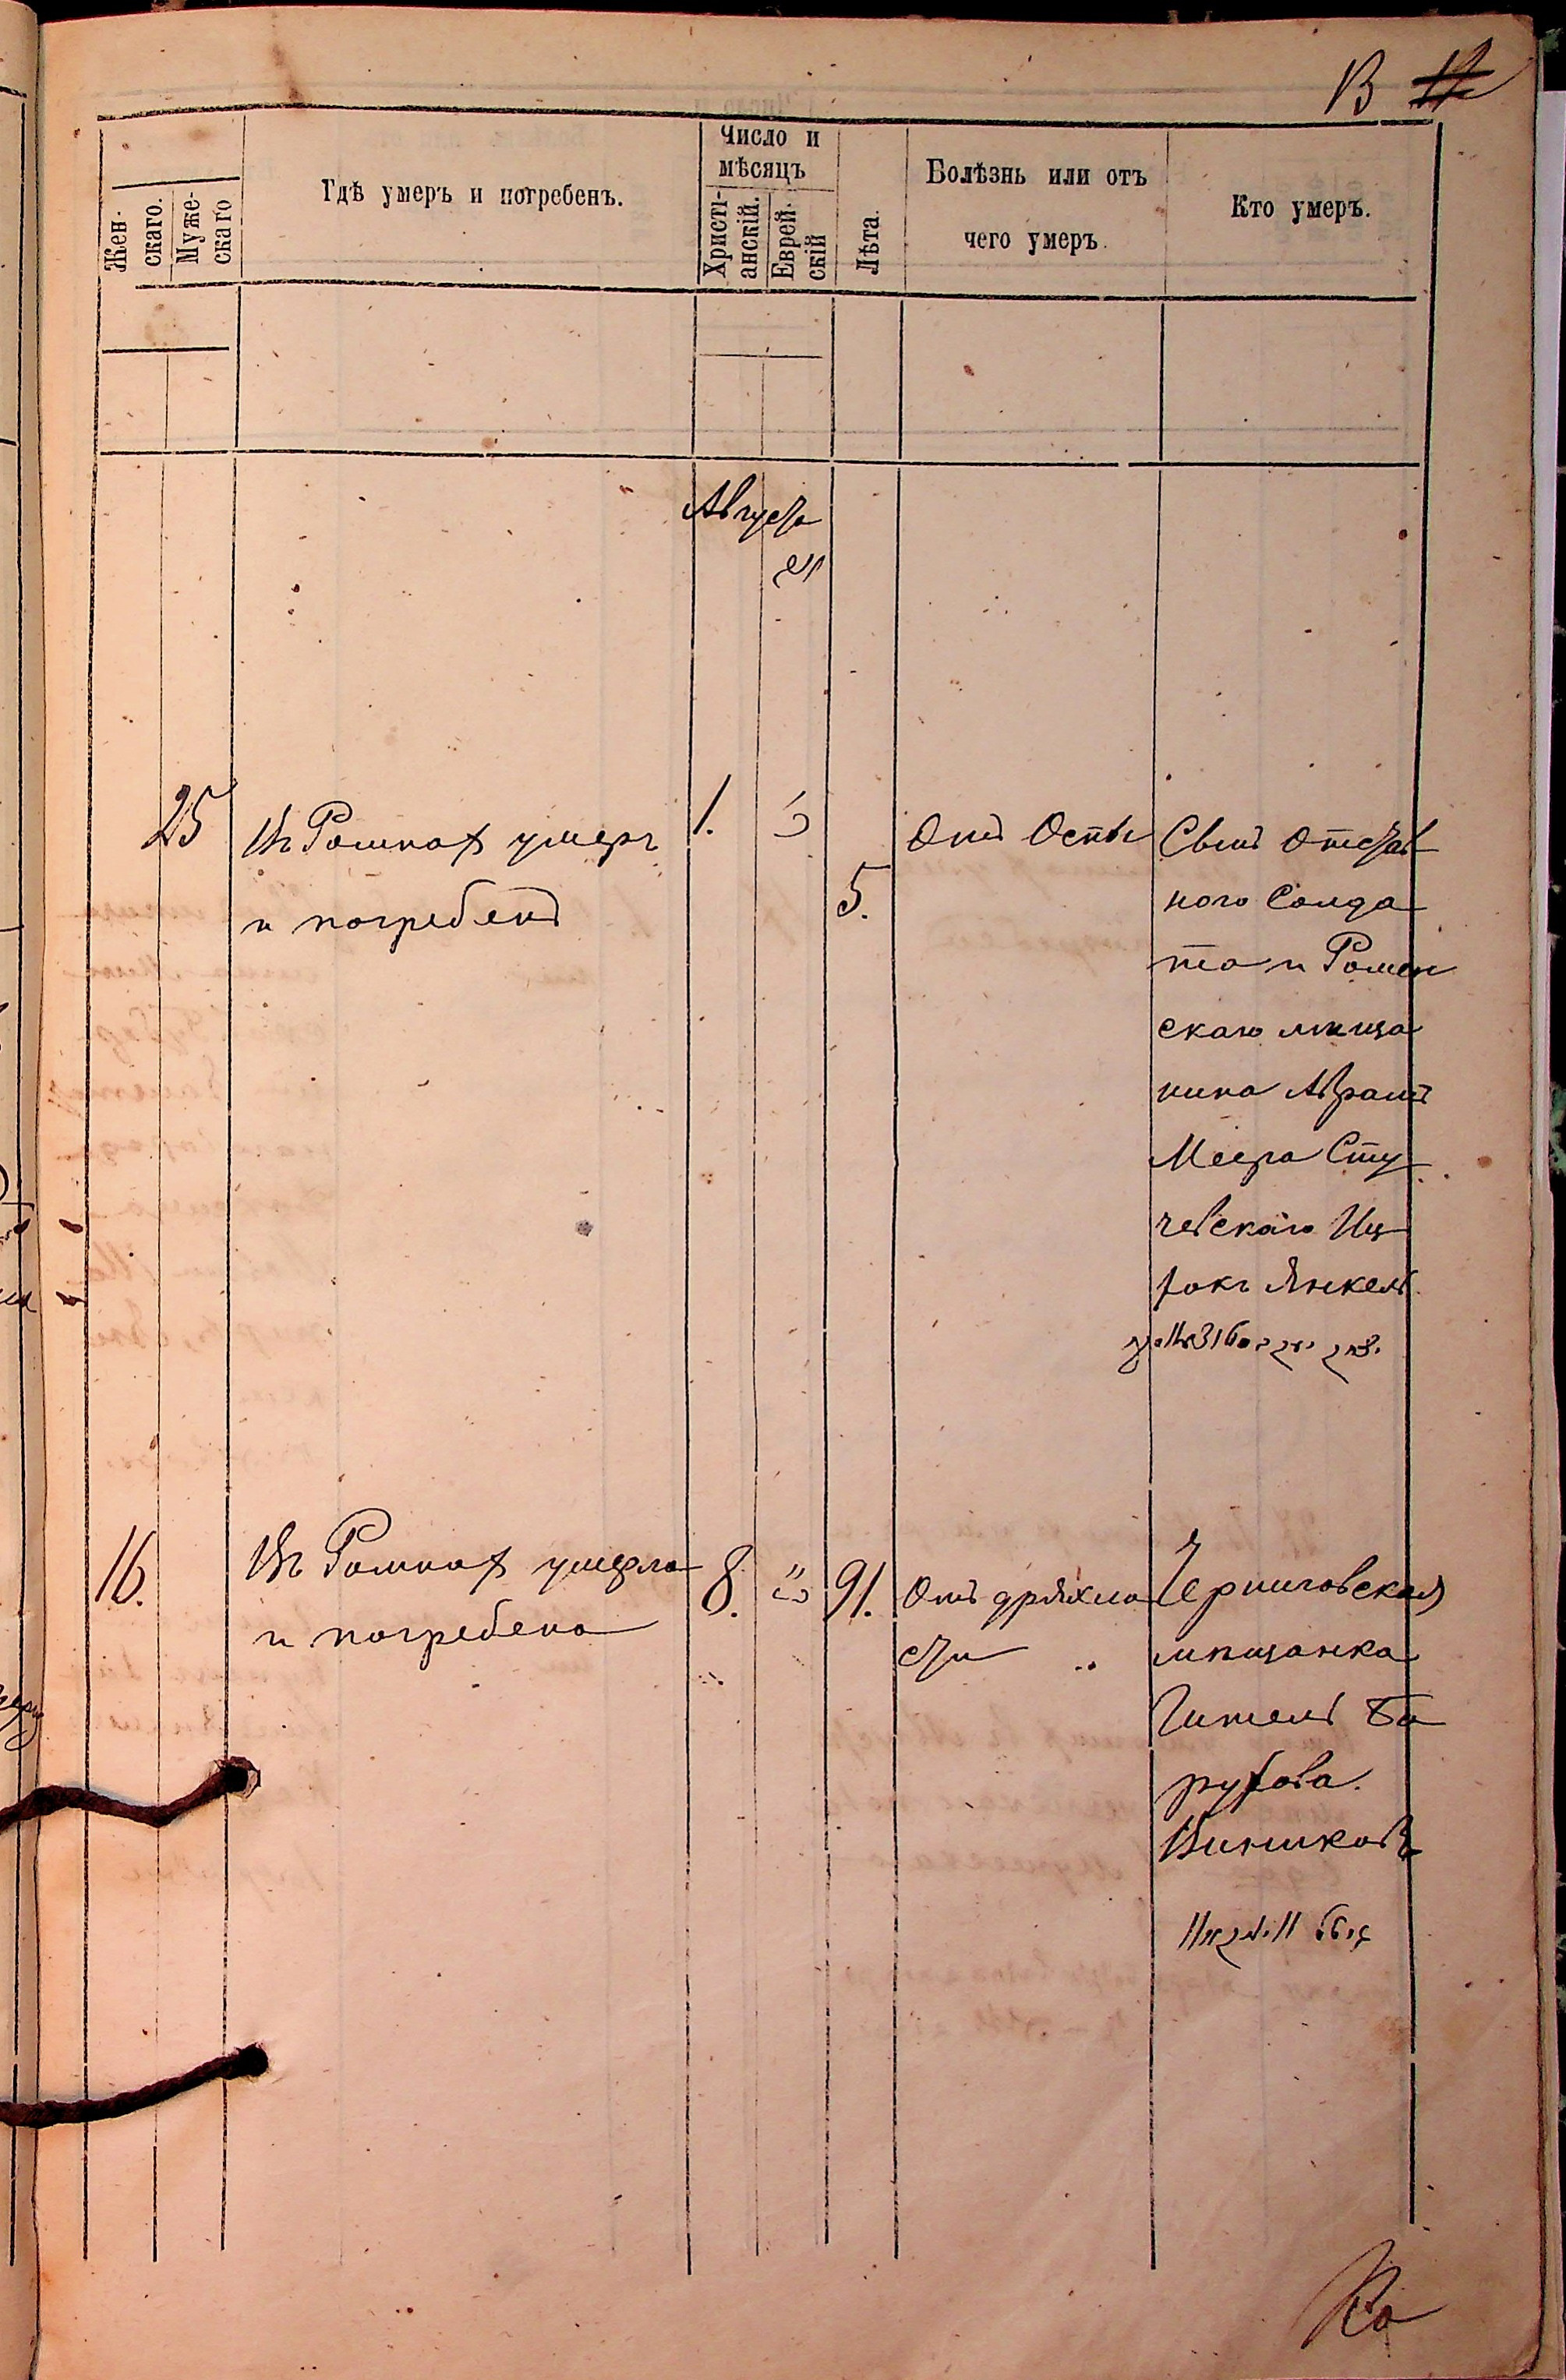 13 12
Жен-
скаго.
Муже-
скаго
Гдѣ умеръ и погребенъ.
Число и
мѣсяцъ
Христі-
анскій.
Еврей-
скій
Лѣта.
Болѣзнь или отъ
чего умеръ.
Кто умеръ.
Августа
25
Въ Ромнах умеръ
и погребенъ
1.
5.
Отъ Оспы
Сынъ Отстав
ного Солда
та и Ромен
скаго мѣща
нина Абрамъ
Меера Сту
чевскаго Иц
хокъ Янкель
16.
Въ Ромнах умерла
и погребена
8.
91.
Отъ дряхло
сти
Черниговская
мѣщанка
Гителъ Ба
рухова.
Виниковъ
Ко